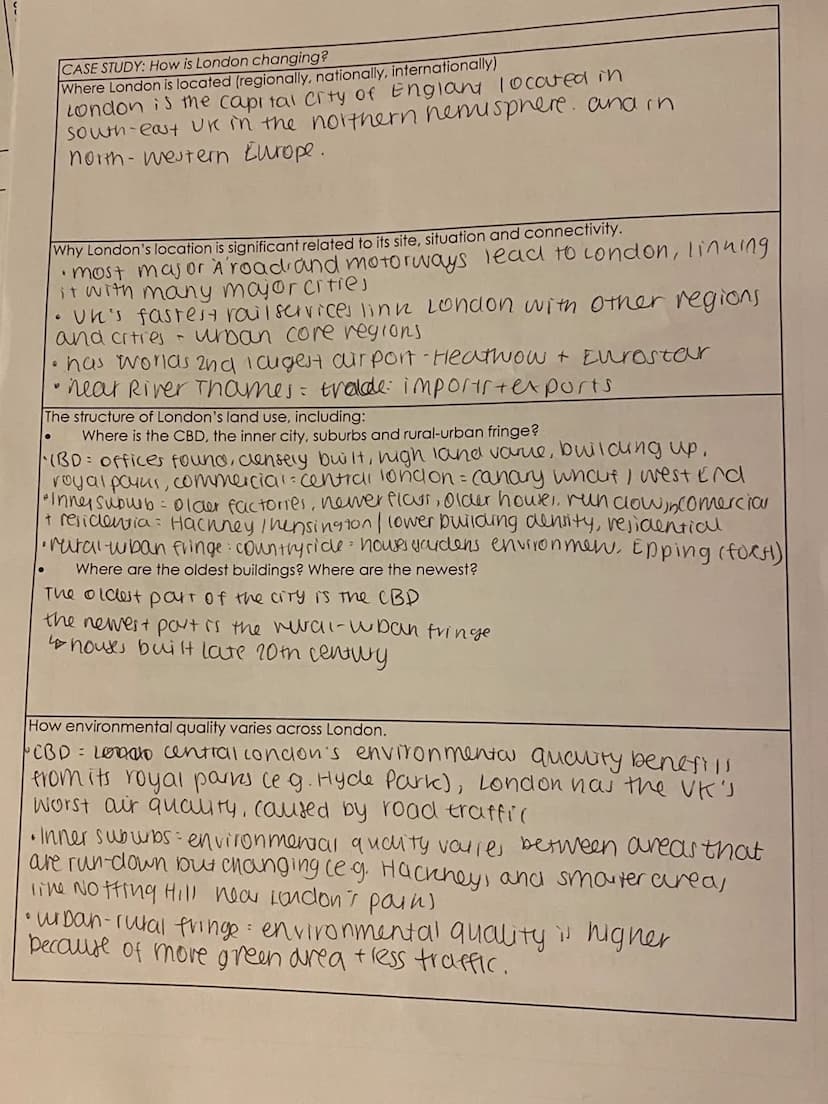 CASE STUDY: How is London changing?
Where London is located (regionally, nationally, internationally)
London is the capital city of England located in
south-east UK in the northern hemisphere. and in
north-western Europe.
Why London's location is significant related to its site, situation and connectivity.
• most major 'A' road and motorways lead to London, linking
it with many major cities
• UK's fastest rail services link London with other regions
and cities - urban core regions
• has worlds 2nd largest airport - Heathrow + Eurostar
• near River Thames = trade: imports + exports
The structure of London's land use, including:
• Where is the CBD, the inner city, suburbs and rural-urban fringe?
• CBD = offices found, densely built, high land value, building up,
royal parks, commercial = central london = canary wharf / west End
• Inner suburb = older factories, newer flats, older houses, run down, comercial
+ residential = Hackney / Kensington / lower building density, residential
• rural-urban fringe = countryside = houses gardens environmen. Epping (forest)
• Where are the oldest buildings? Where are the newest?
The oldest part of the city is the CBD
the newest part is the rural-urban fringe
↳ houses built late 20th century
How environmental quality varies across London.
• CBD = central London's environmental quality benefits
from its royal parks (e.g. Hyde Park), London has the UK's
worst air quality, caused by road traffic
• Inner suburbs = environmental quality varies between areas that
are run-down but changing (e.g. Hackney) and smarter areas
like Notting Hill near London's parks)
• urban-rural fringe = environmental quality is higher
because of more green area + less traffic.